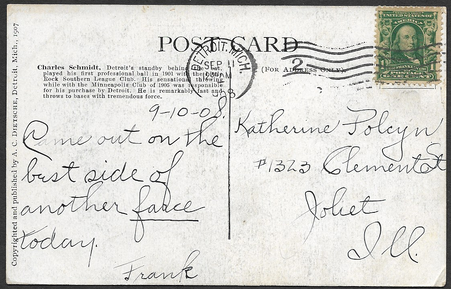 POST CARD
(FOR ADDRESS ONLY)
DETROIT, MICH.
SEP 11
1908
2
Charles Schmidt, Detroit's standby behind the bat,
played his first professional ball in 1901 with the Little
Rock Southern League Club. His sensational showing
while with the Minneapolis Club of 1905 was responsible
for his purchase by Detroit. He is remarkably fast and
throws to bases with tremendous force.
Copyrighted and published by A. C. DIETSCHE, Detroit, Mich., 1907
9-10-08
Came out on the
best side of
another farce
today.
Frank
Katherine Polcyn
#1323 Clement St
Joliet
Ill.